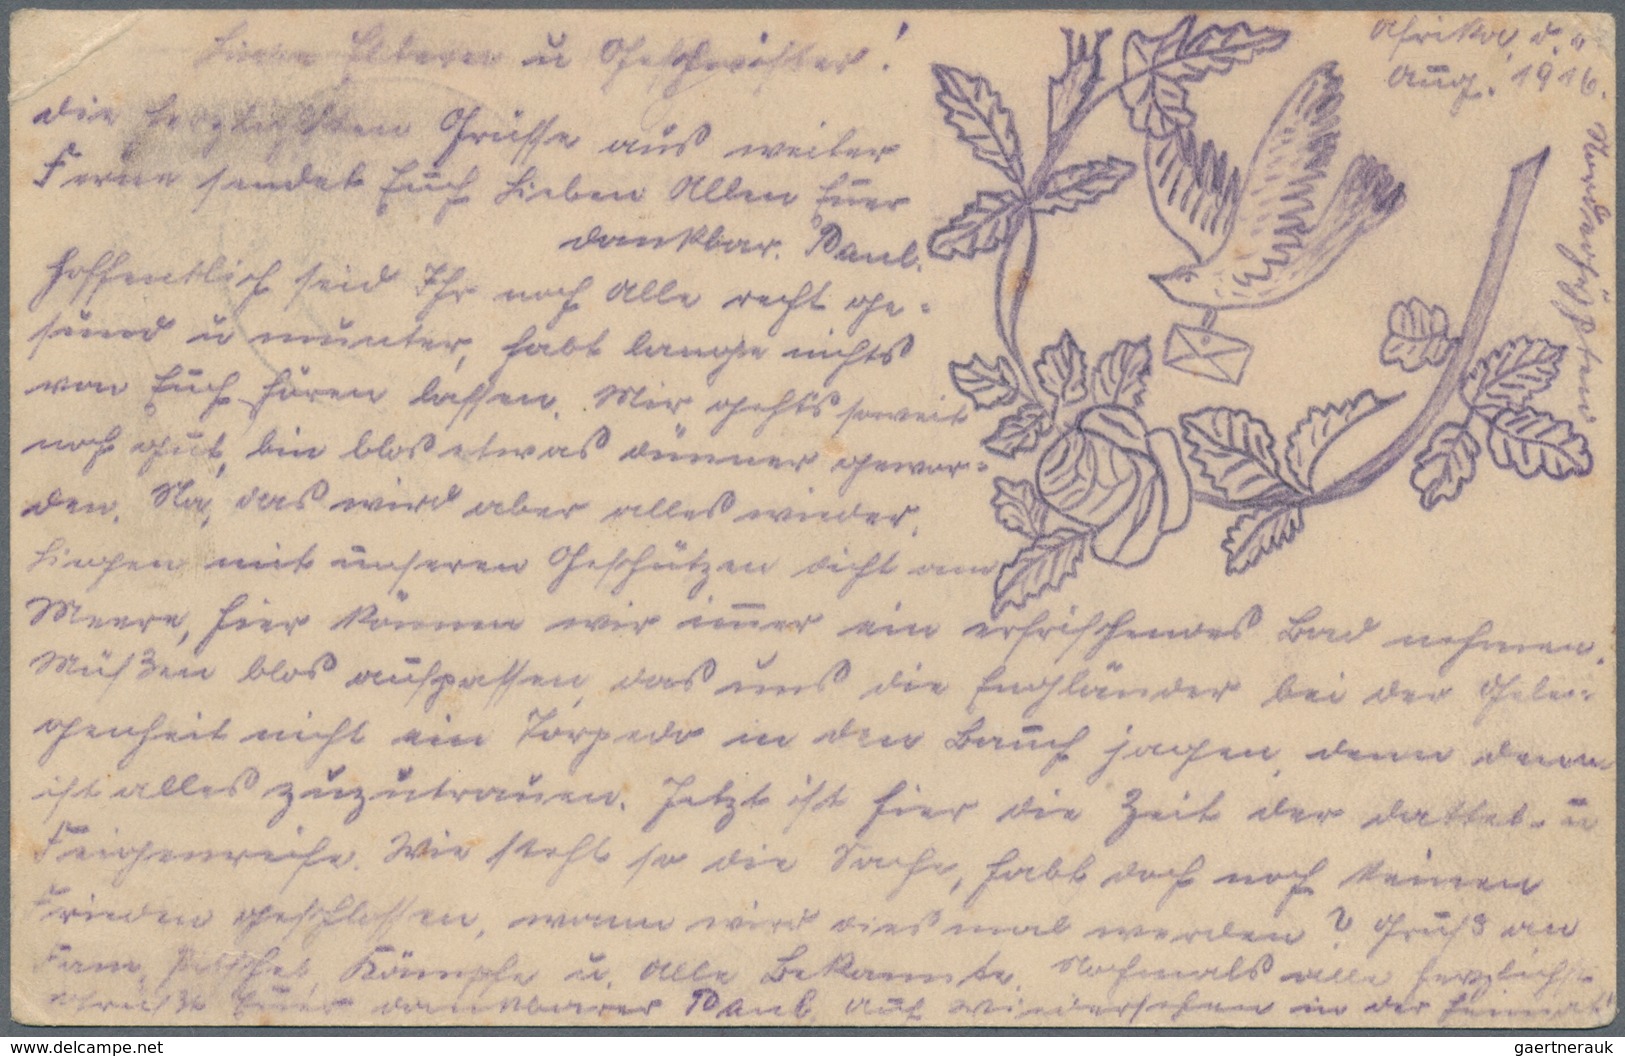 Afrika, d. 
Aug. 1916.
Nordaegypten
Liebe Eltern u Geschwister!
die herzlichsten Grüsse aus weiter
Ferne sendet Euch Lieben Allen Euer
dankbar. Paul.
Hoffentlich seid Ihr noch Alle recht ge=
sund u munter, habt lange nichts
von Euch hören lassen. Mir gehts soweit
noch gut, bin blos etwas dünner gewor=
den. Na, das wird aber alles wieder.
Liegen mit unseren Geschützen dicht am
Meere, hier können wir im̅er ein erfrischendes Bad nehmen.
Müsßen blos aufpassen, das uns die Engländer bei der Gele=
genheit nicht ein Torpedo in den Bauch jagen, denn denen
ist alles zuzutrauen. Jetzt ist hier die Zeit der Dattel- u
Feigenreife. Wie steht so die Sache, habt doch noch keinen
Frieden geschlossen, wann wird dies mal werden? Gruß an
Fam. Kämpfe u. Alle Bekannte. Nochmals alle herzlichst
Grüßt Euer dankbarer Paul. Auf Wiedersehen in der Heimat!
www.delcampe.net
gaertnerauk